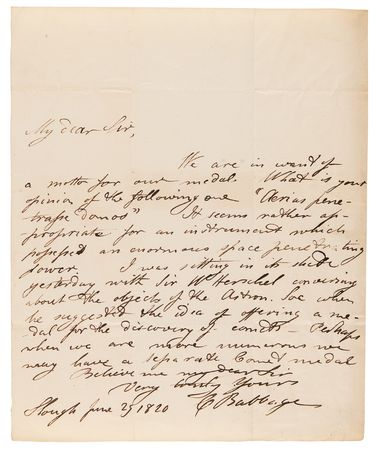 My dear Sir,
We are in want of
a motto for our medal. What is your
opinion of the following one "Aenas pene-
trasse domos" It seems rather ap-
propriate for an instrument which
possessed an enormous space penetrating
power. I was sitting in its shade
yesterday with Sir Wm Herschel conversing
about the objects of the Astron. Soc when
he suggested the idea of offering a me-
dal for the discovery of comets Perhaps
when we are more numerous we
may have a separate Comet medal
Believe me my dear Sir
Very truly Yours
Slough June 29 1820 C Babbage